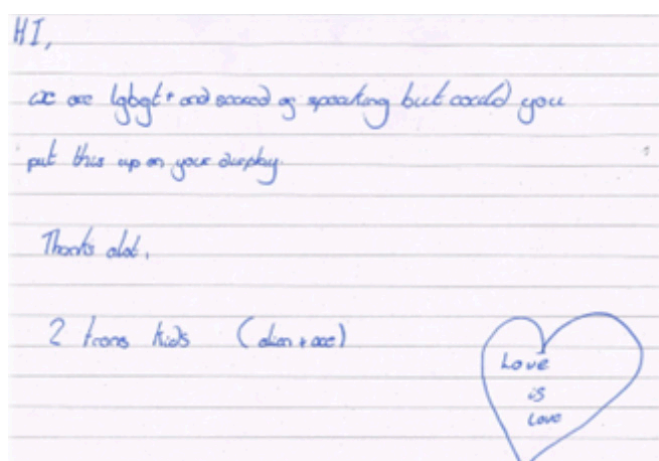 HI,
we are lgbqt+ and scared of speaking but could you
put this up on your display.
Thanks alot,
2 trans kids ( + ace)
Love
is
Love